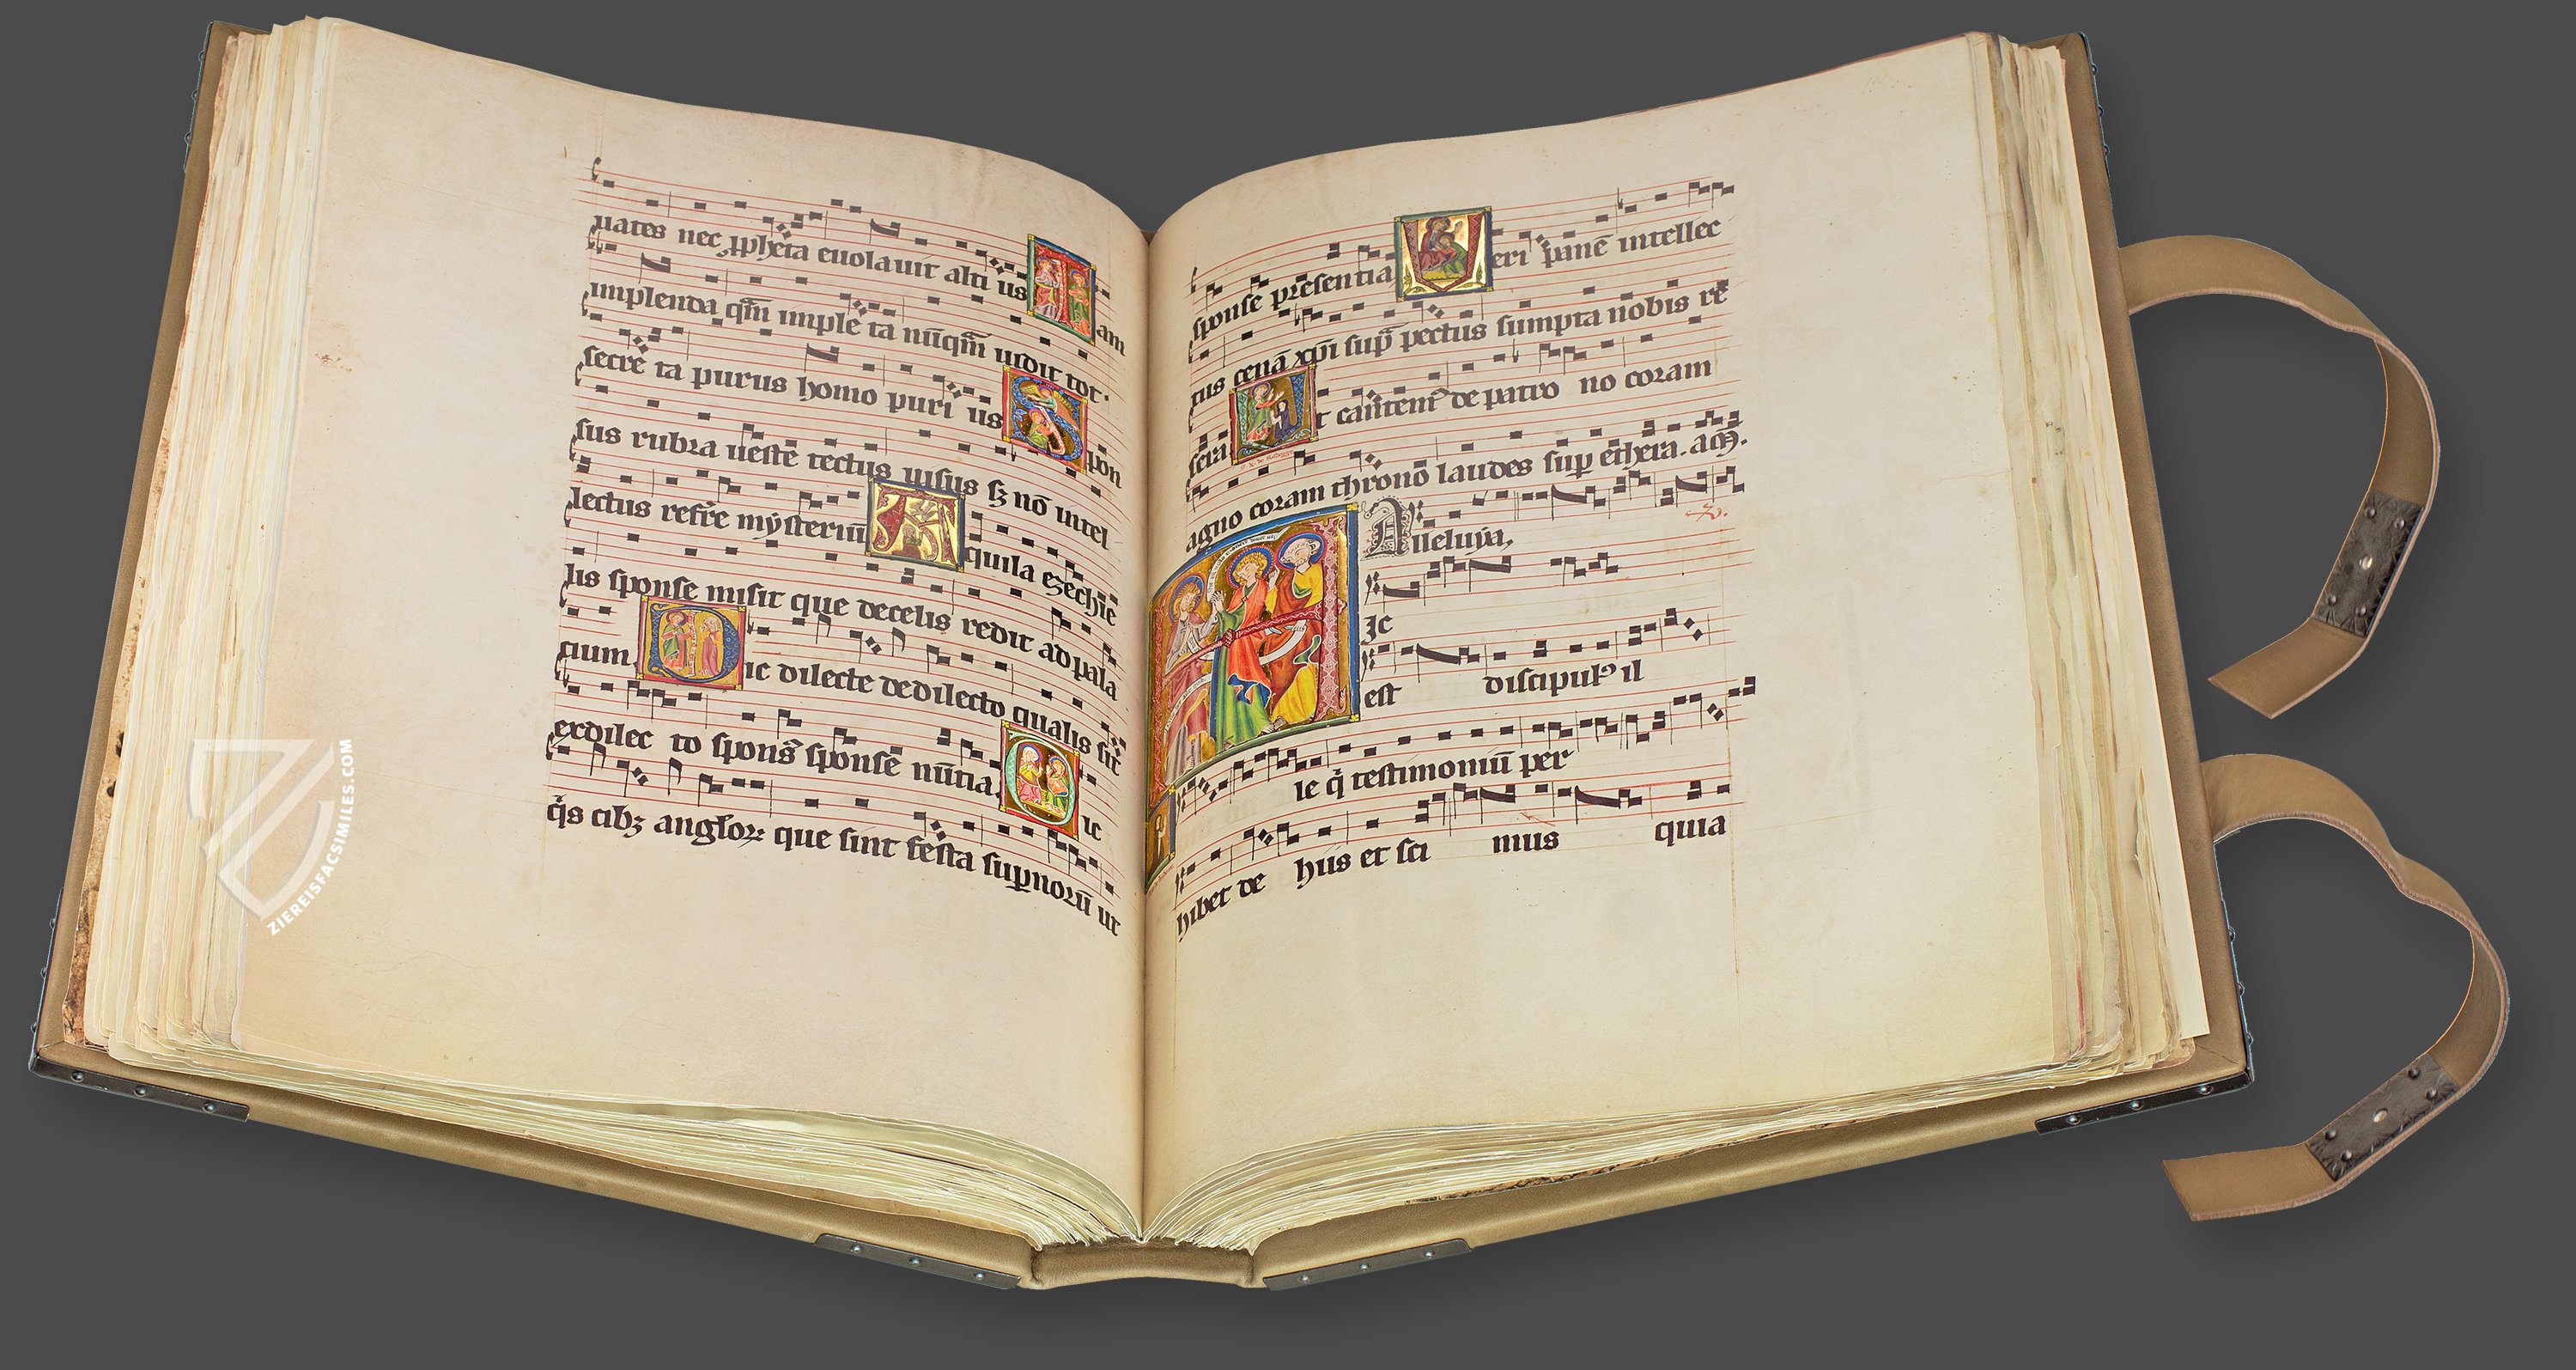 uates nec ꝓpheta euolauit alti us Tam
implenda qm̄ imple ta nūqm̄ uidit tot.
secre ta purus homo puri us Spon
sus rubra ueste tectus uisus sꝫ nō intel
lectus refr̄e mẏsteriū Aquila ezechie
lis sponse misit que decelis redit ad pala
cium Dic dilecte de dilecto qualis sit
ex dilec to spons̄ sponse nūtia Dic
q̄s cibꝫ angloꝝ que sint festa sup̄noꝝ ut
sponse presentia Veri panē intellec
tus cenā xp̄i sup̄ pectus sumpta nobis re
sera Ut cātem̄ de patro no coram
agno coram throno laudes sup̄ ethera. am̄.
Alleluya,
ic
est discipulꝰ il
le q̄ testimoniū per
hibet de hiis et sci mus quia
ZIEREISFACSIMILES.COM